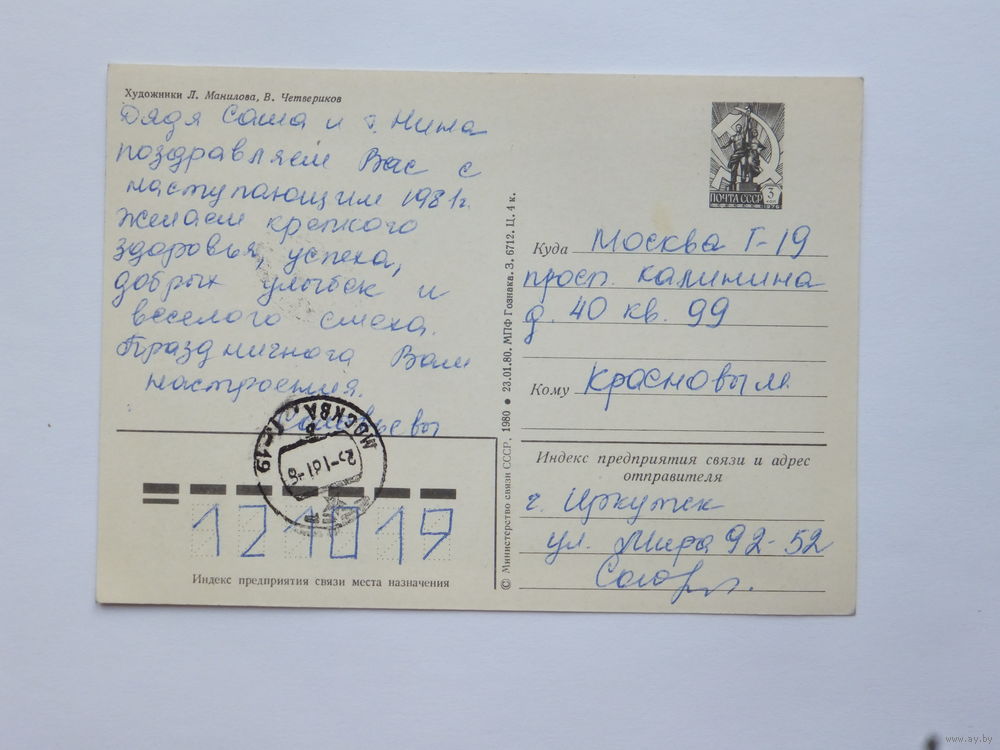 Художники Л. Манилова, В. Четвериков
Дядя Саша и т. Нина
поздравляем Вас с
наступающим 1981г.
Желаем крепкого
здоровья, успеха,
добрых улыбок и
веселого смеха.
Праздничного Вам
настроения.
ПОЧТА СССР 3 КОП
Куда Москва Г-19
просп. Калинина
д. 40 кв. 99
Кому Красновым
Индекс предприятия связи и адрес
отправителя
г. Иркутск
ул. Мира 92-52
МОСКВА Г-19
121019
Индекс предприятия связи места назначения
© Министерство связи СССР, 1980 • 23.01.80. МПФ Гознака. З. 6712. Ц. 4 к.
www.ay.by